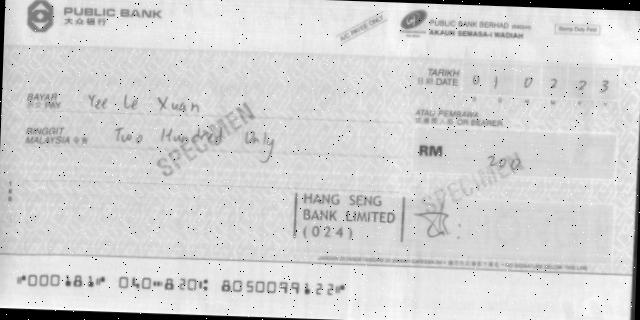 PUBLIC BANK
大众银行
A/C PAYEE ONLY
PUBLIC BANK BERHAD
AKAUN SEMASA-i WADIAH
Stamp Duty Paid
TARIKH
日期 DATE 0 1 0 2 2 3
D D M M Y Y
BAYAR
PAY Yee Le Xuan
ATAU PEMBAWA
OR BEARER
RINGGIT
MALAYSIA Two Hundred Only
RM 200
SPECIMEN
SPECIMEN
HANG SENG
BANK LIMITED
(024)
⑈000181⑈ 040⑉820⑆ 8050099122⑈